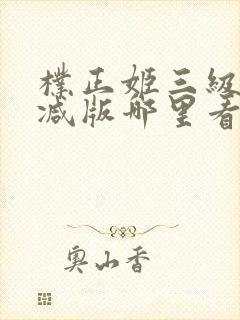 樸正姬三級
減版哪里看
奧山香